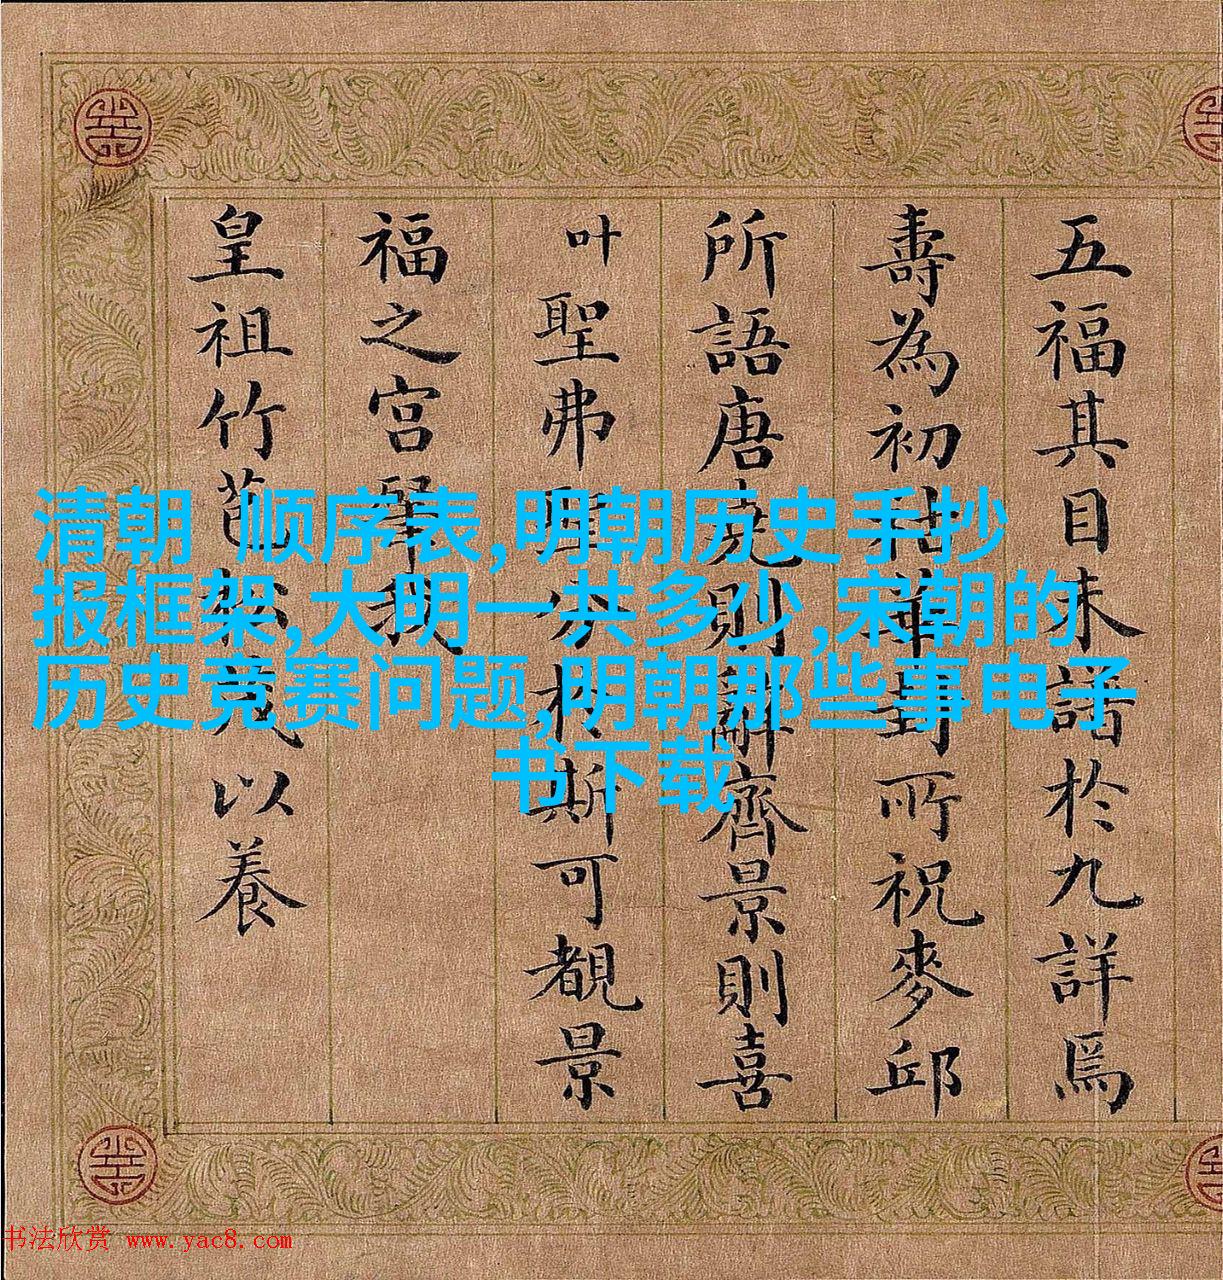 五福其目未語於九詳焉
壽為初祜華封所祝麥邱
所語唐堯則辭齊景則喜
叶聖弗聖分於斯可覩景
福之宮肇我
皇祖竹苞松茂以養
清朝 顺序表,明朝历史手抄
报框架,大明一共多少,宋朝的
历史竞赛问题,明朝那些事电子
书下载
书法欣赏 www.yac8.com